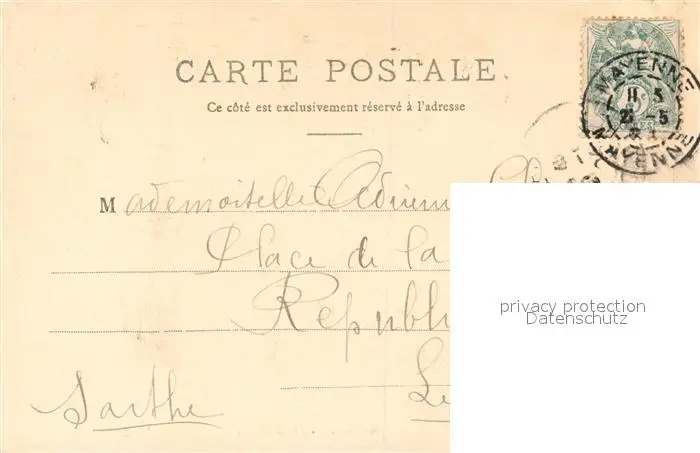 CARTE POSTALE.
Ce côté est exclusivement réservé à l'adresse
MAYENNE
11 5
21 - 5
MAYENNE
Mademoiselle
Place de la
Républi
Le
Sarthe
privacy protection
Datenschutz